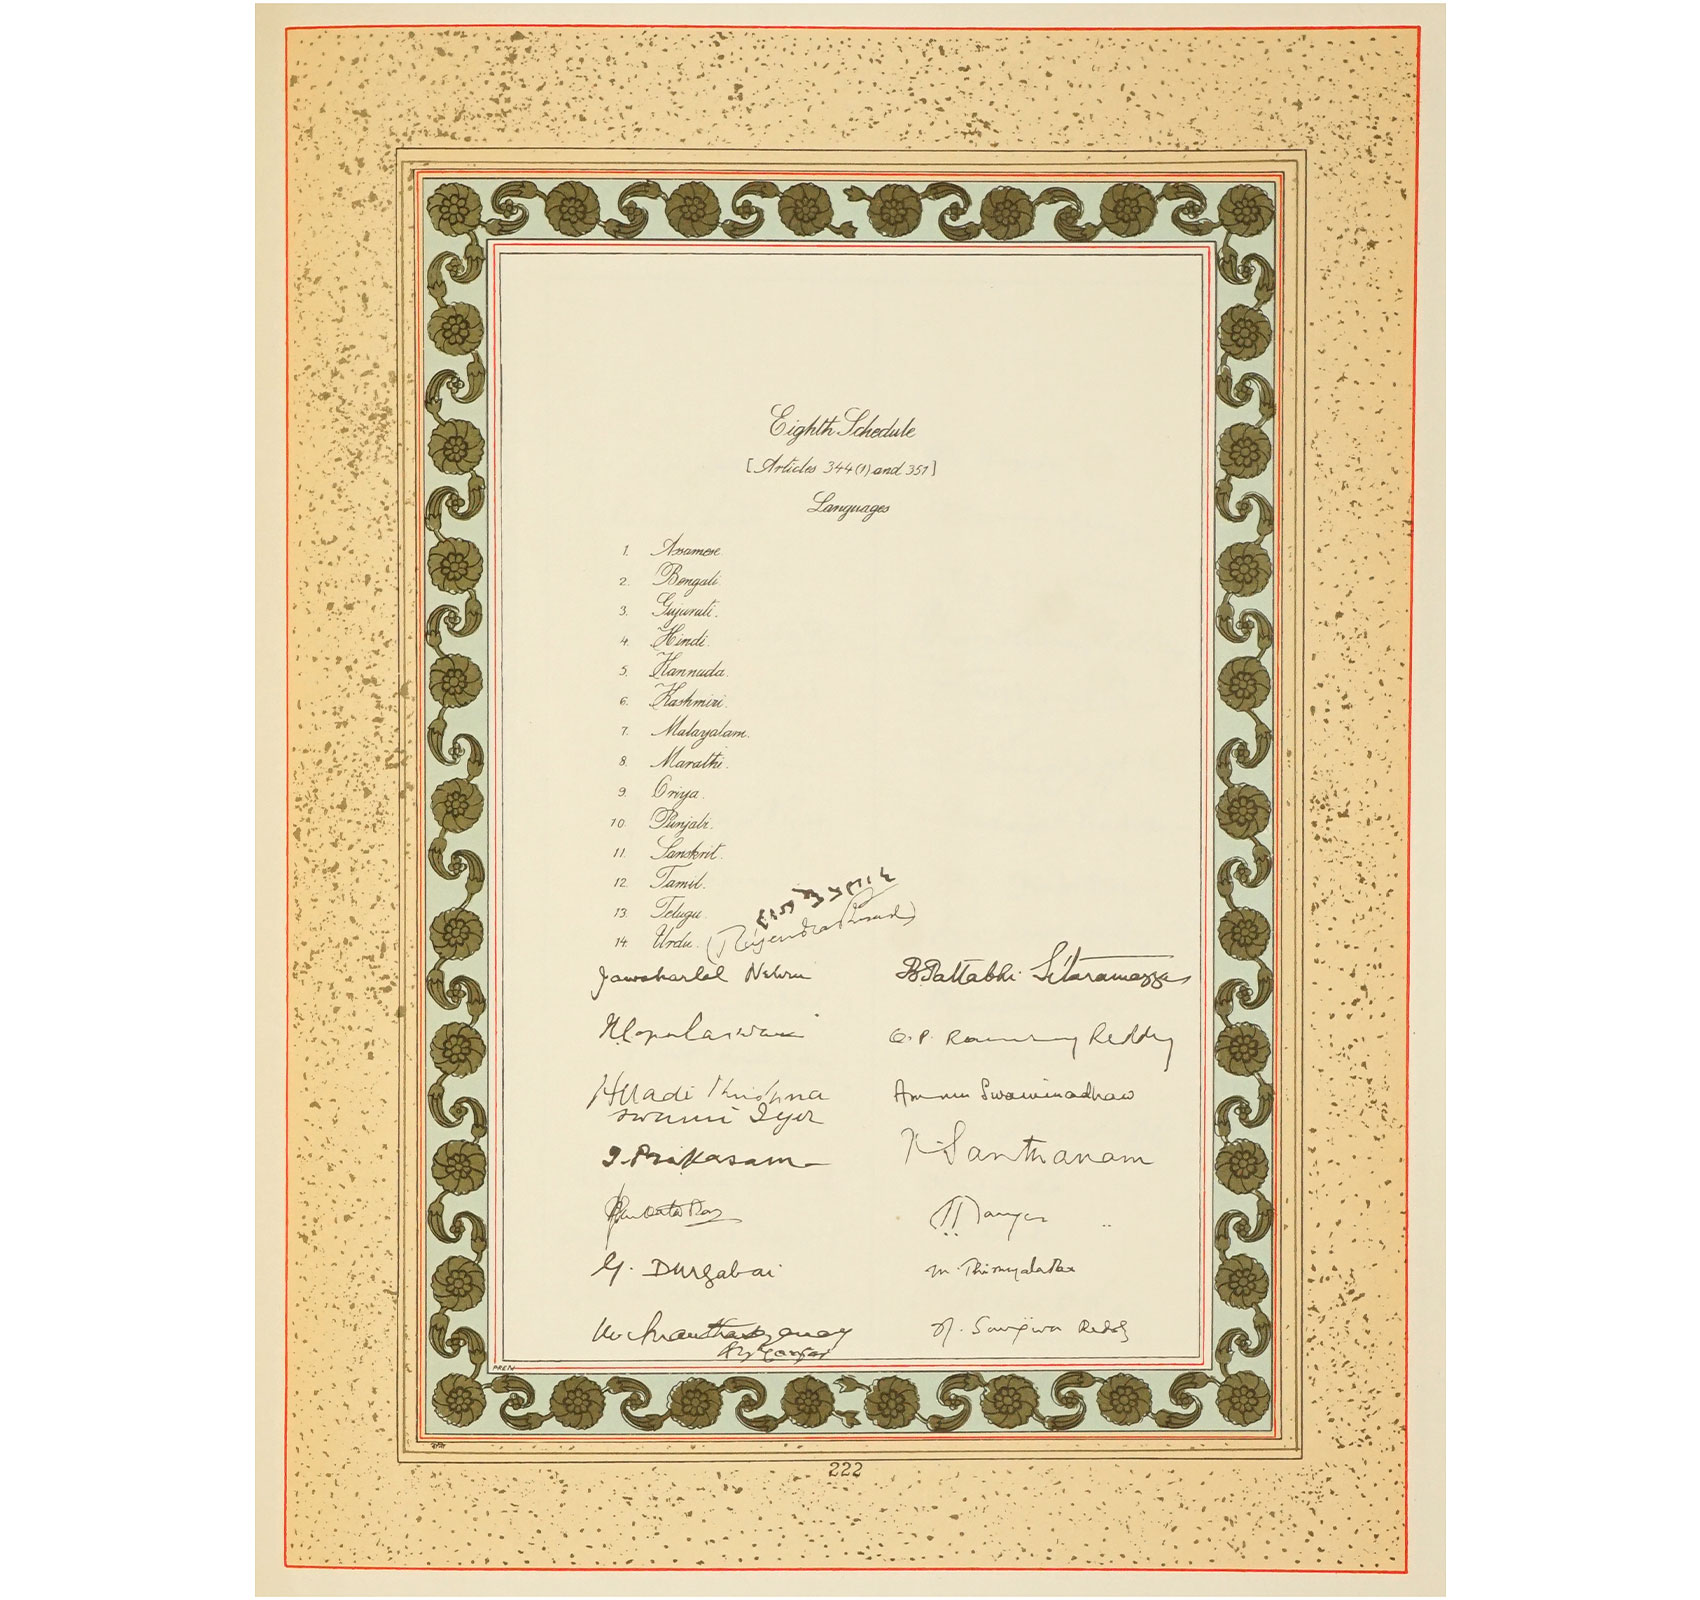 Eighth Schedule
[Articles 344(1) and 351]
Languages
1. Assamese.
2. Bengali.
3. Gujarati.
4. Hindi.
5. Kannada.
6. Kashmiri.
7. Malayalam.
8. Marathi.
9. Oriya.
10. Punjabi.
11. Sanskrit.
12. Tamil.
13. Telugu.
14. Urdu.
(Rajendra Prasad)
Jawaharlal Nehru
B Pattabhi Sitaramayya
O. P. Ramaswamy Reddy
Alladi Krishna
swami Iyer
Ammu Swaminadhan
T. Prakasam
K Santhanam
G. Durgabai
M. Thirumala Rao
N. Sanjiva Reddy
Ayyangar
PREM
222